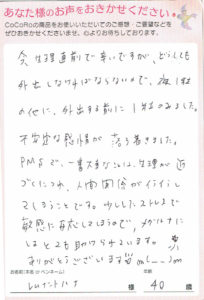 あなた様のお声をおきかせください
CoCoRoの商品をお使いいただいてのご感想・ご要望などを
ぜひおきかせくださいませ。心よりお待ちしております。
今、生理直前で辛いですが、どうしても
外出しなければならないので、夜1粒
の他に、外出する前に1粒のみました。
不安定な感情が落ち着きました。
PMSで、一番大変なのは、生理が近
づくにつれ、人間関係がイライラし
てしまうことです。少ししたストレスで
敏感に反応してしまうので、メグルナに
はとても助けられています。
ありがとうございます m(__)m
お名前(本名 or ペンネーム)
年齢
様 40 歳